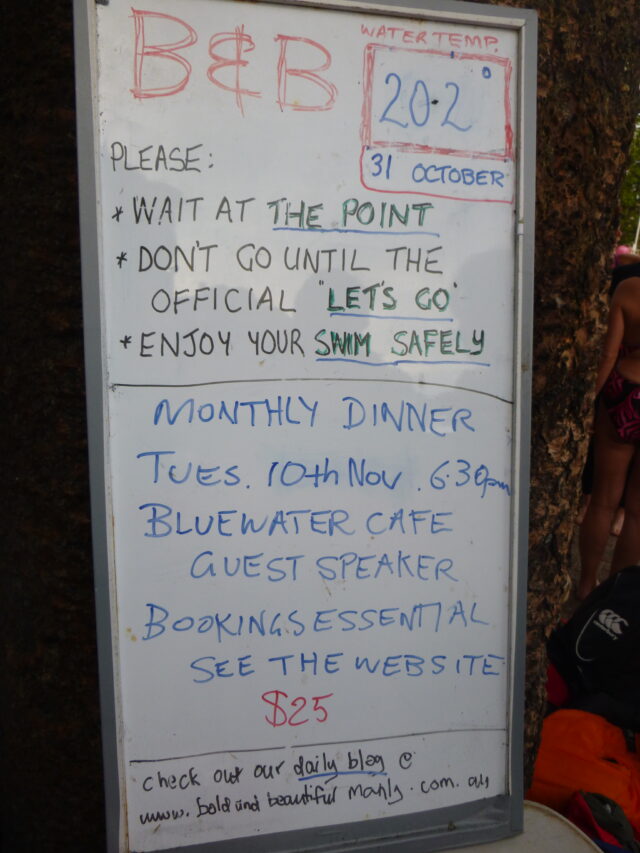 B&B
WATER TEMP.
20·2°
31 OCTOBER
PLEASE:
* WAIT AT THE POINT
* DON'T GO UNTIL THE
OFFICIAL "LET'S GO"
* ENJOY YOUR SWIM SAFELY
MONTHLY DINNER
TUES. 10th Nov. 6·30pm
BLUEWATER CAFE
GUEST SPEAKER
BOOKINGS ESSENTIAL
SEE THE WEBSITE
$25
check out our daily blog @
www.boldandbeautifulmanly.com.au
canterbury